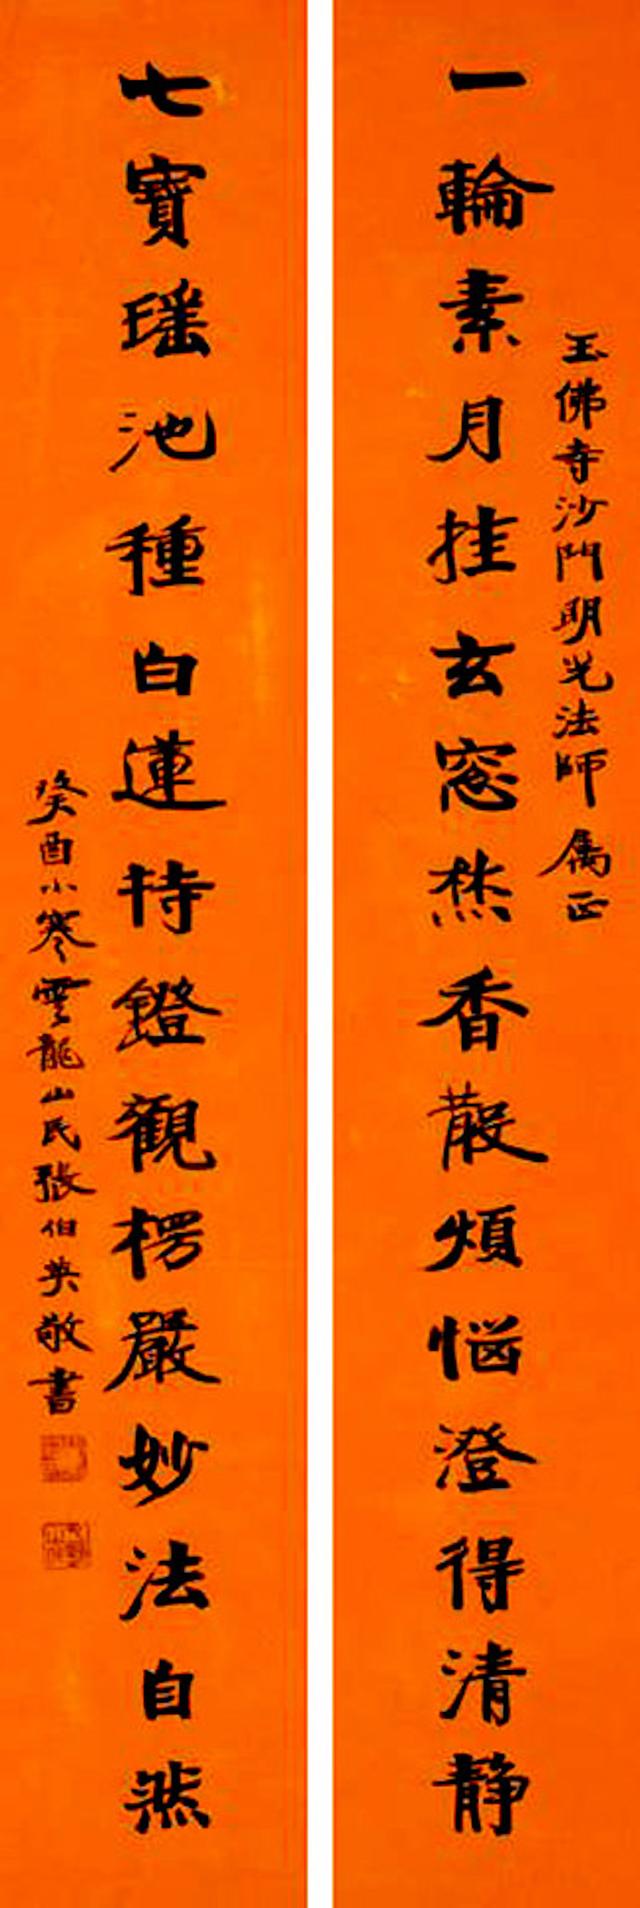 玉佛寺沙門明光法師属正
一輪素月挂玄窓焚香散煩惱澄得清静
七寶瑶池種白蓮持鐙觀楞嚴妙法自然
癸酉小寒雲龍山民張伯英敬書